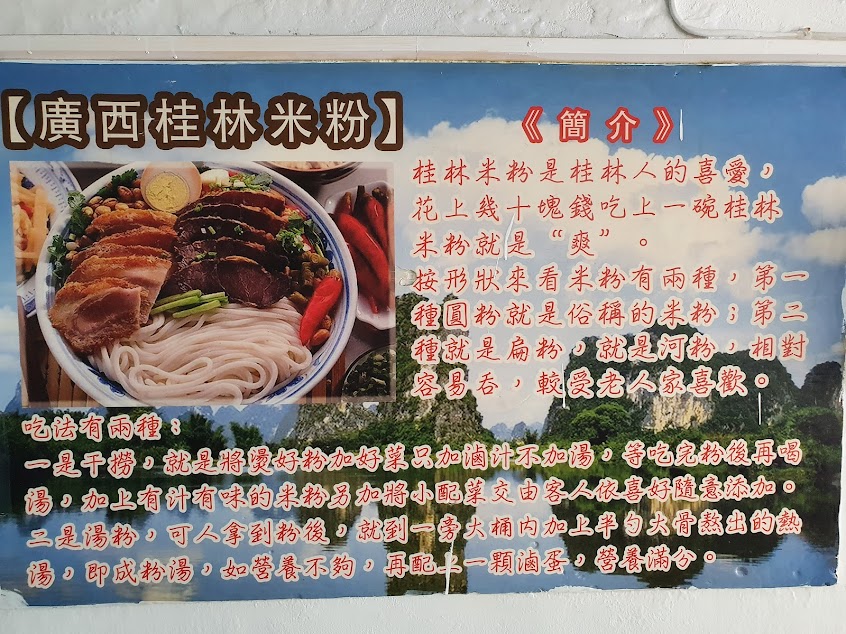 【廣西桂林米粉】
《簡介》
桂林米粉是桂林人的喜愛，
花上幾十塊錢吃上一碗桂林
米粉就是“爽”。
按形狀來看米粉有兩種，第一
種圓粉就是俗稱的米粉；第二
種就是扁粉，就是河粉，相對
容易吞，較受老人家喜歡。
吃法有兩種：
一是干撈，就是將燙好粉加好菜只加滷汁不加湯，等吃完粉後再喝
湯，加上有汁有味的米粉另加將小配菜交由客人依喜好隨意添加。
二是湯粉，可人拿到粉後，就到一旁大桶內加上半勺大骨熬出的熱
湯，即成粉湯，如營養不夠，再配上一顆滷蛋，營養滿分。